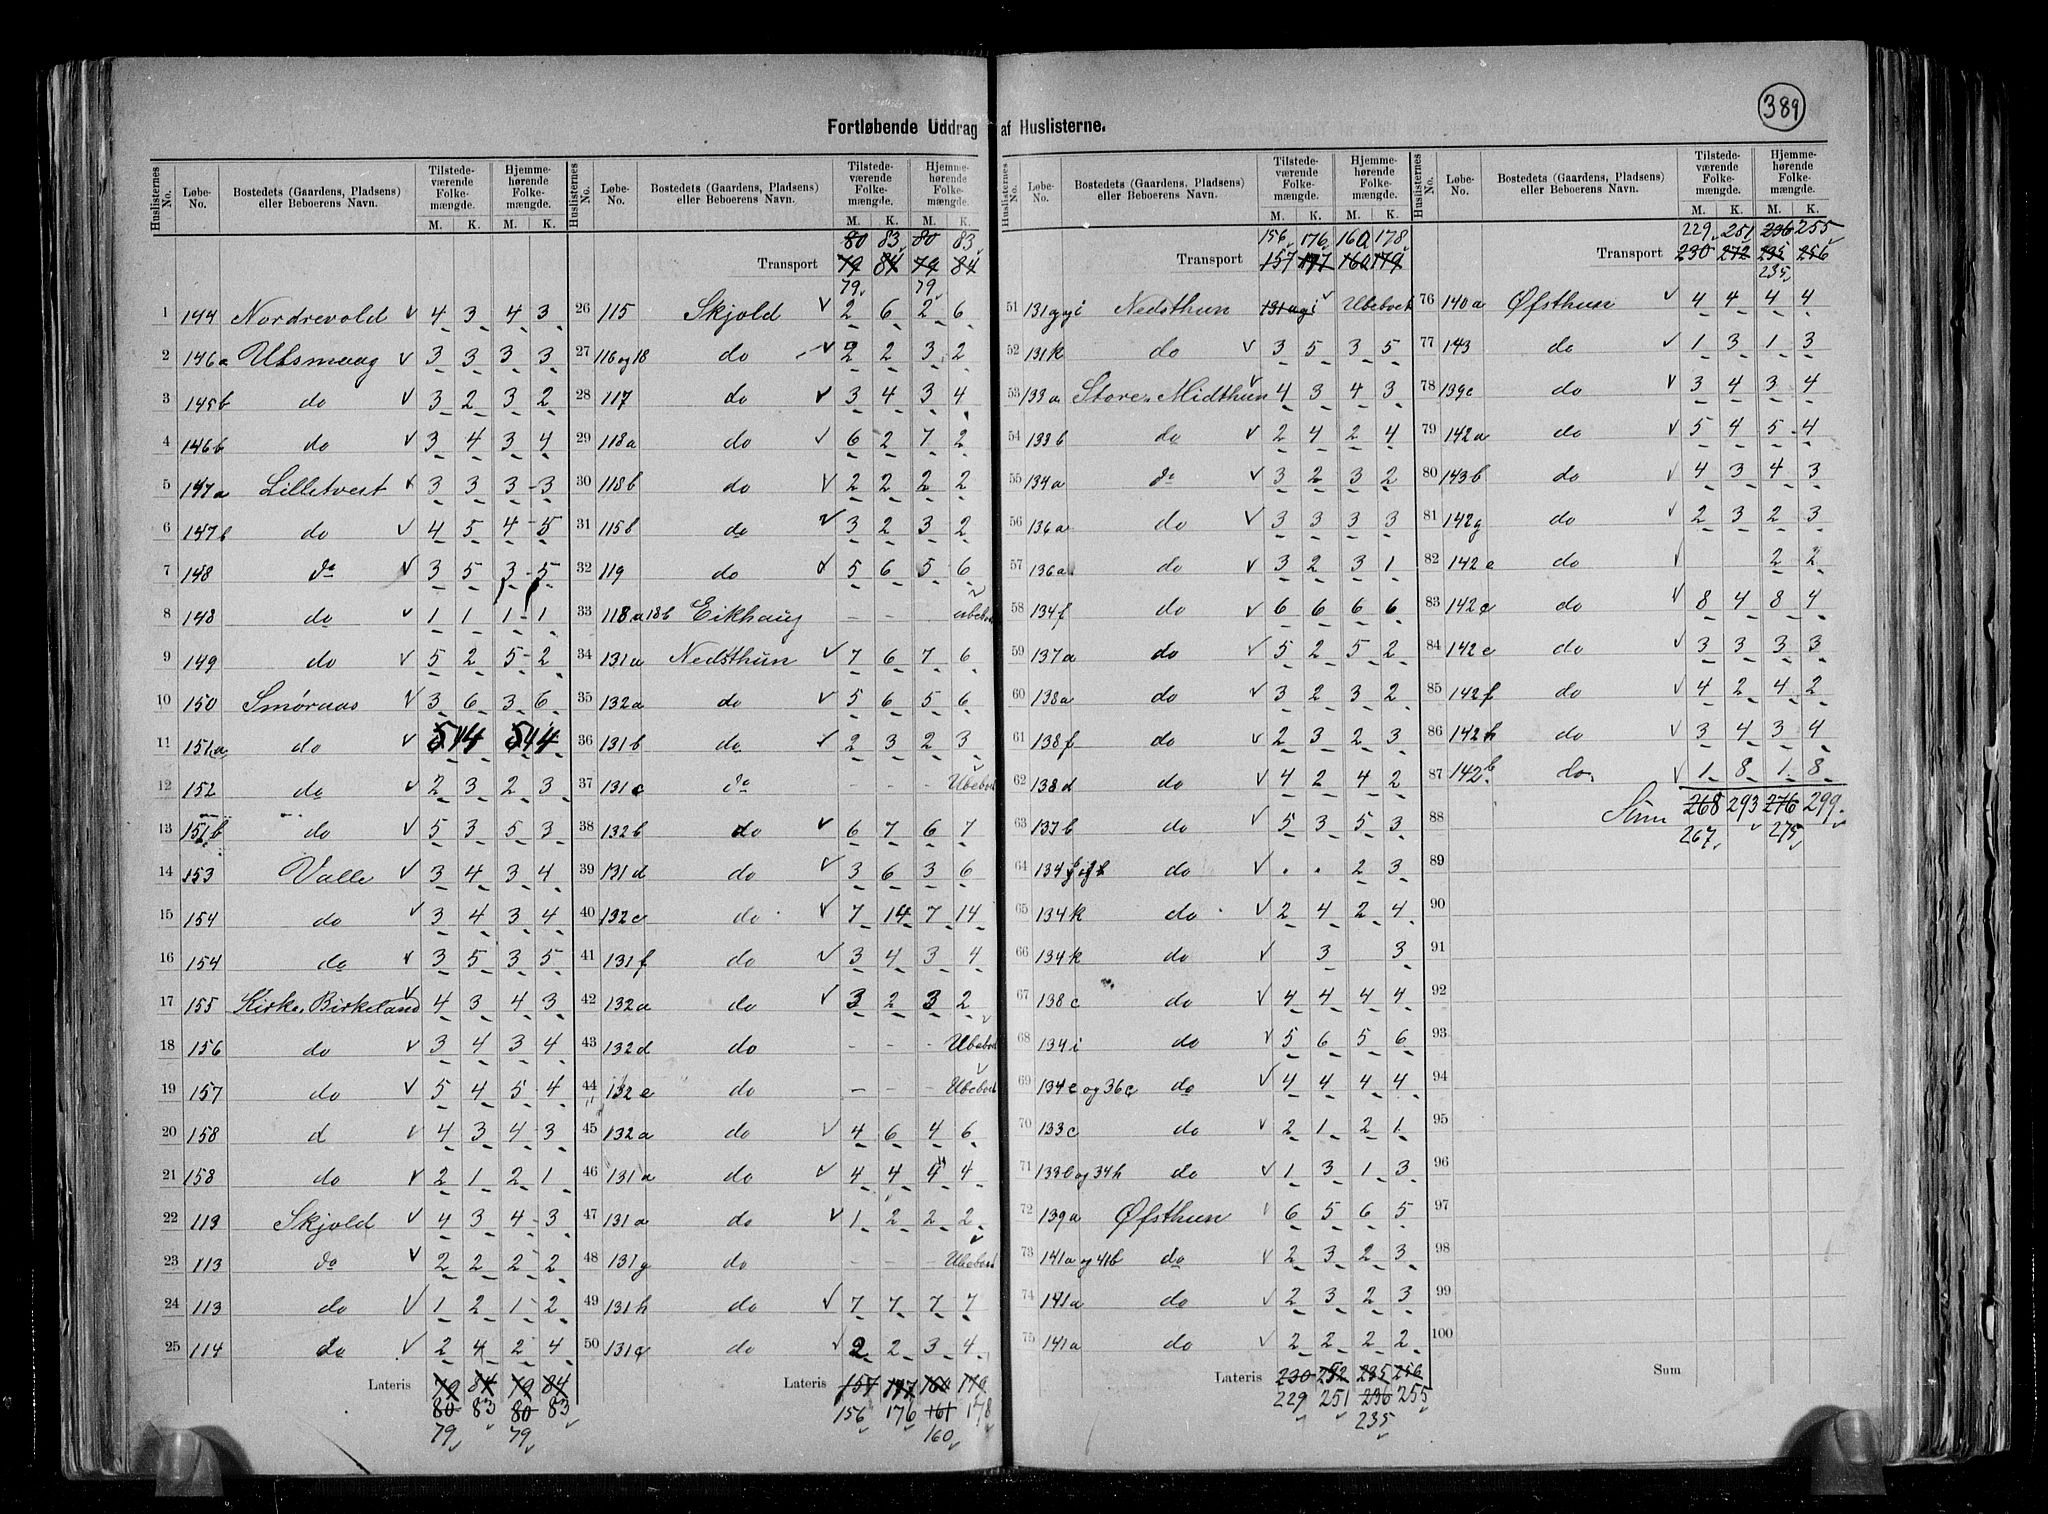 389
Fortløbende Uddrag af Huslisterne.
Huslisternes No. Løbe-No. Bostedets (Gaardens, Pladsens) eller Beboerens Navn. Tilstede-værende Folke-mængde. M. K. Hjemme-hørende Folke-mængde. M. K.
1 144 Nordrevold 4 3 4 3
2 146a Utsmaag 3 3 3 3
3 145b do 3 2 3 2
4 146b do 3 4 3 4
5 147a Lilletvest 3 3 3 3
6 147b do 4 5 4 5
7 148 do 3 5 3 5
8 148 do 1 1 1 1
9 149 do 5 2 5 2
10 150 Smøraas 3 6 3 6
11 151a do 5 4 5 4
12 152 do 2 3 2 3
13 151b do 5 3 5 3
14 153 Valle 3 4 3 4
15 154 do 3 4 3 4
16 154 do 3 5 3 5
17 155 Kirke, Birkeland 4 3 4 3
18 156 do 3 4 3 4
19 157 do 5 4 5 4
20 158 d 4 3 4 3
21 158 do 2 1 2 1
22 113 Skjold 4 3 4 3
23 113 do 2 2 2 2
24 113 do 1 2 1 2
25 114 do 2 4 2 4
Lateris 79 84 79 84
80 83 80 83
79 79
Huslisternes No. Løbe-No. Bostedets (Gaardens, Pladsens) eller Beboerens Navn. Tilstede-værende Folke-mængde. M. K. Hjemme-hørende Folke-mængde. M. K.
80 83 80 83
Transport 79 84 79 84
79 79
26 115 Skjold 2 6 2 6
27 116 og 18 do 2 2 3 2
28 117 do 3 4 3 4
29 118a do 6 2 7 2
30 118b do 2 2 2 2
31 115b do 3 2 3 2
32 119 do 5 6 5 6
33 118a 18b Eikhaug – – – ubeboet
34 131a Nedsthun 7 6 7 6
35 132a do 5 6 5 6
36 131b do 2 3 2 3
37 131c do - - - Ubeboet
38 132b do 6 7 6 7
39 131d do 3 6 3 6
40 132c do 7 14 7 14
41 131f do 3 4 3 4
42 132a do 3 2 3 2
43 132d do - - - Ubeboet
44 132e do - - - Ubeboet
45 132a do 4 6 4 6
46 131a do 4 4 4 4
47 131a do 1 2 2 2
48 131g do - - - Ubeboet
49 131h do 7 7 7 7
50 131e do 2 2 3 4
Lateris 157 177 160 179
156 176 161 178
160
Huslisternes No. Løbe-No. Bostedets (Gaardens, Pladsens) eller Beboerens Navn. Tilstede-værende Folke-mængde. M. K. Hjemme-hørende Folke-mængde. M. K.
156 176 160 178
Transport 157 177 160 179
51 131g og i Nedsthun Ubeboet
52 131k do 3 5 3 5
53 133a Store, Midthun 4 3 4 3
54 133b do 2 4 2 4
55 134a do 3 2 3 2
56 136a do 3 3 3 3
57 136a do 3 2 3 1
58 134f do 6 6 6 6
59 137a do 5 2 5 2
60 138a do 3 2 3 2
61 138f do 2 3 2 3
62 138d do 4 2 4 2
63 137b do 5 3 5 3
64 134 do . . 2 3
65 134k do 2 4 2 4
66 134k do 3 3
67 138c do 4 4 4 4
68 134i do 5 6 5 6
69 134e og 36c do 4 4 4 4
70 133c do 2 1 2 1
71 133b og 34h do 1 3 1 3
72 139a Øfsthun 6 5 6 5
73 141a og 41b do 2 3 2 3
74 141a do 2 3 2 3
75 141a do 2 2 2 2
Lateris 230 252 235 256
229 251 236 255
235
Huslisternes No. Løbe-No. Bostedets (Gaardens, Pladsens) eller Beboerens Navn. Tilstede-værende Folke-mængde. M. K. Hjemme-hørende Folke-mængde. M. K.
229 251 236 255
Transport 230 272 235 256
235
76 140a Øfsthun 4 4 4 4
77 143 do 1 3 1 3
78 139c do 3 4 3 4
79 142a do 5 4 5 4
80 143b do 4 3 4 3
81 142g do 2 3 2 3
82 142e do 2 2
83 142c do 8 4 8 4
84 142e do 3 3 3 3
85 142f do 4 2 4 2
86 142h do 3 4 3 4
87 142b do 1 8 1 8
88 Sum 268 293 276 299
267 275
89
90
91
92
93
94
95
96
97
98
99
100
Sum